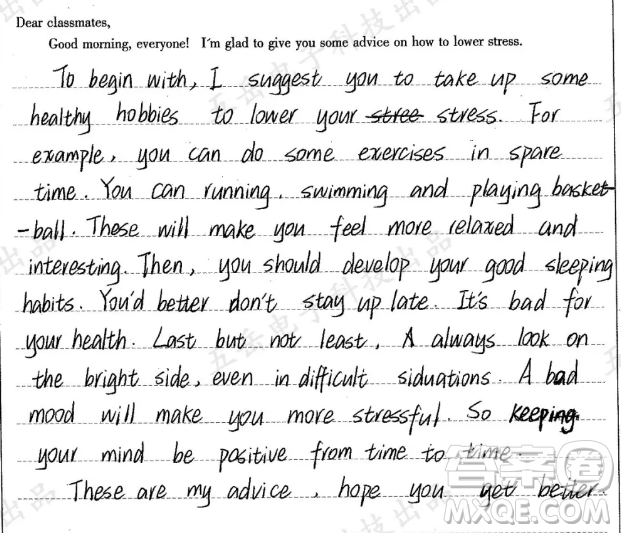 Dear classmates,
Good morning, everyone! I'm glad to give you some advice on how to lower stress.
To begin with, I suggest you to take up some
healthy hobbies to lower your stree stress. For
example, you can do some exercises in spare
time. You can running, swimming and playing basket-
-ball. These will make you feel more relaxed and
interesting. Then, you should develop your good sleeping
habits. You'd better don't stay up late. It's bad for
your health. Last but not least, A always look on
the bright side, even in difficult siduations. A bad
mood will make you more stressful. So keeping
your mind be positive from time to time.
These are my advice, hope you get better.
五岳电子科技出品
答案圈
MXQE.COM